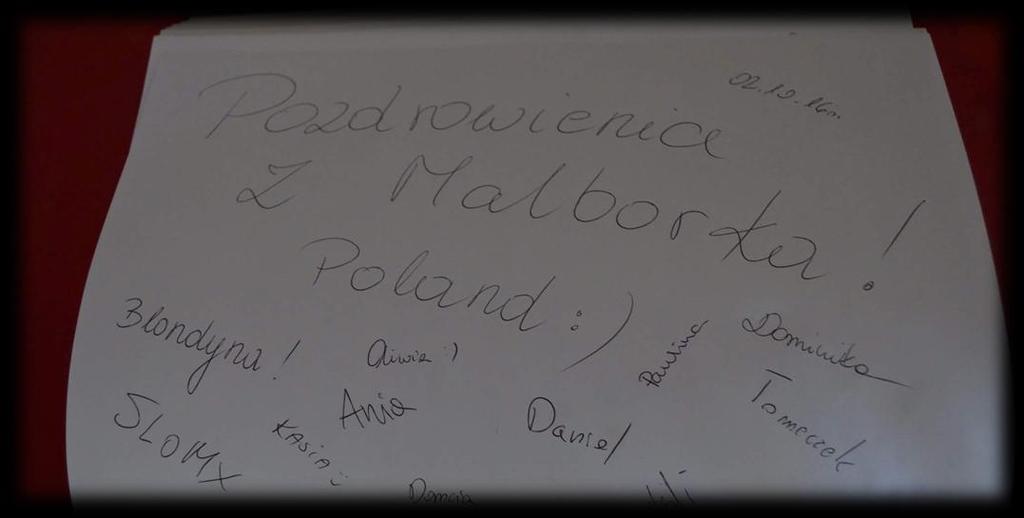 02.10.16r.
Pozdrowienia
z Malborka!
Poland :)
Blondyna!
Oliwia :)
Paulina
Dominika
Ania
Daniel
Tomeczek
SLOMX
KASIA :)
Domcia